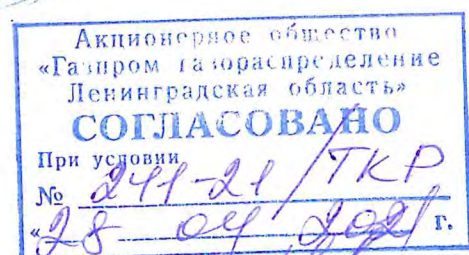 Акционерное общество
«Газпром газораспределение
Ленинградская область»
СОГЛАСОВАНО
При условии
№ 241-21/ТКР
«28 04 2021 г.